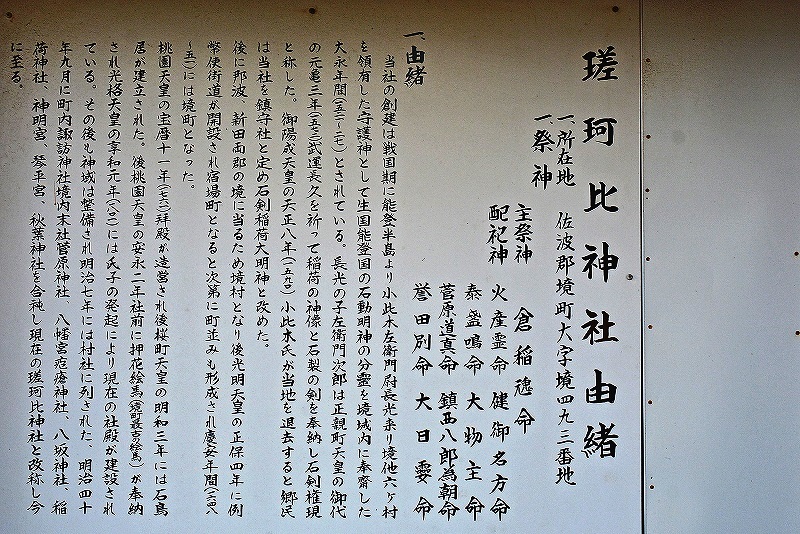 瑳珂比神社由緒
一、所在地　佐波郡境町大字境四九三番地
一、祭神
主祭神　倉稲魂命
配祀神　火産霊命　健御名方命
素盞鳴命　大物主命
菅原道真命　鎮西八郎為朝命
誉田別命　大日孁命
一、由緒
当社の創建は戦国期に能登半島より小此木左衛門尉長光来り境他六ヶ村
を領有した守護神として生国能登国の石動明神の分霊を境城内に奉齋した
大永年間(一五二一〜二七)とされている。長光の子左衛門次郎は正親町天皇の御代
の元亀三年(一五七二)武運長久を祈って稲荷の神像と石製の剣を奉納し石剣権現
と称した。御陽成天皇の天正八年(一五八〇)小此木氏が当地を退去すると郷民
は当社を鎮守社と定め石剣稲荷大明神と改めた。
後に那波、新田両郡の境に当るため境村となり後光明天皇の正保四年に例
幣使街道が開設され宿場町となると次第に町並みも形成され慶安年間(一六四八
〜五一)には境町となった。
桃園天皇の宝暦十一年(一七六一)拝殿が造営され後桜町天皇の明和三年には石鳥
居が建立された。後桃園天皇の安永二年社前に押花絵馬が奉納
され光格天皇の享和元年(一八〇一)には氏子の発起により現在の社殿が建設され
ている。その後も神域は整備され明治七年には村社に列された、明治四十
年九月に町内諏訪神社境内末社菅原神社、八幡宮疱瘡神社、八坂神社、稲
荷神社、神明宮、琴平宮、秋葉神社を合祀し現在の瑳珂比神社と改称し今
に至る。